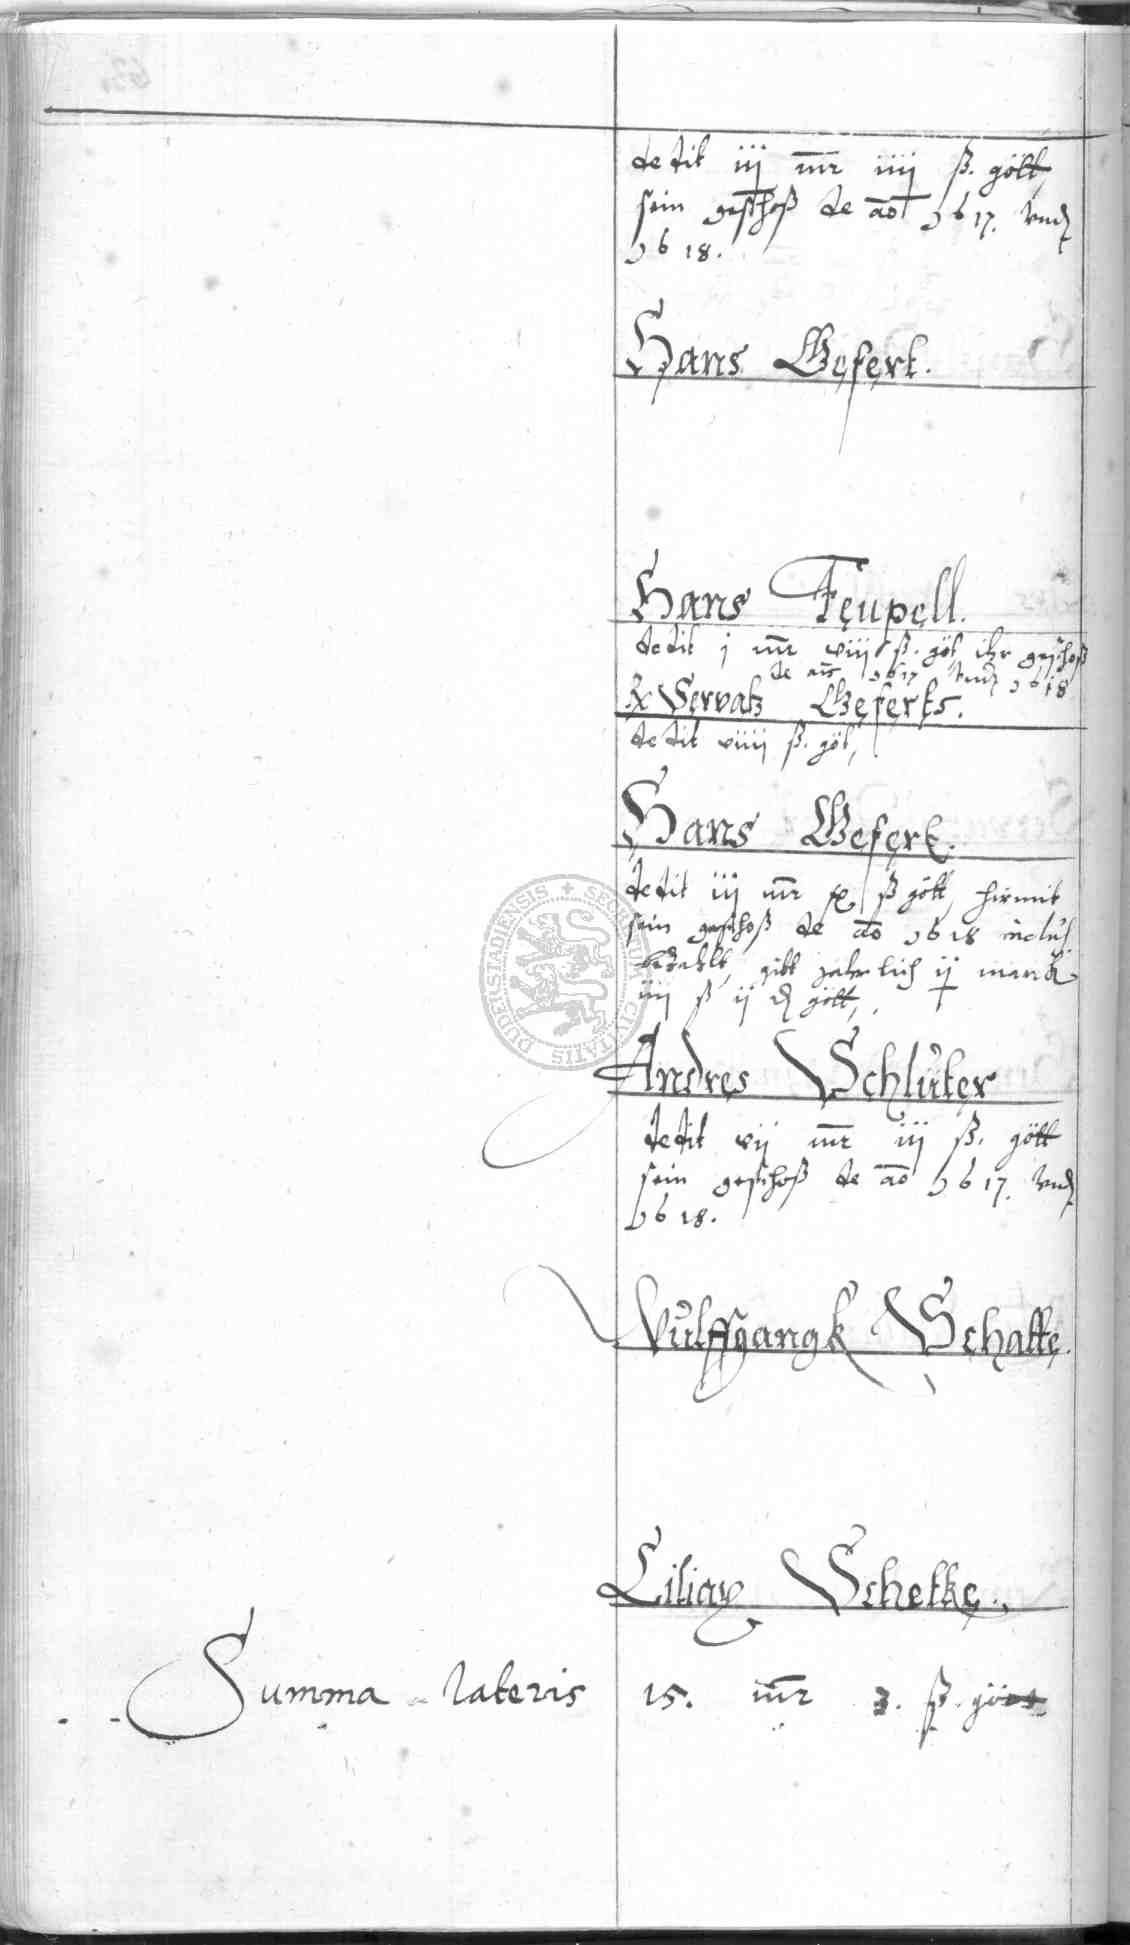 dedit iij mr iiij ß. gött,
sein geschoß de ao 1617. vnd
1618.
Hans Gefert.
Hans Teupell.
dedit j mr viij ß. göt ihr geschoß
de ao 1617 vnd 1618
Servatz Geferts.
dedit viiij ß. göt,
Hans Gefert.
dedit iij mr x ß gött, hirmit
sein geschoß de ao 1618 inclus
bezahlt, gibt jahrlich ij marck
iiij ß ij d gött,
Andres Schluter
dedit vij mr iij ß. gött
sein geschoß de ao 1617. vnd
1618.
Wulffgangk Schatte.
Ciliax Schetke.
Summa lateris 15. mr 3. ß.
SECRETUM CIVITATIS DUDERSTADIENSIS